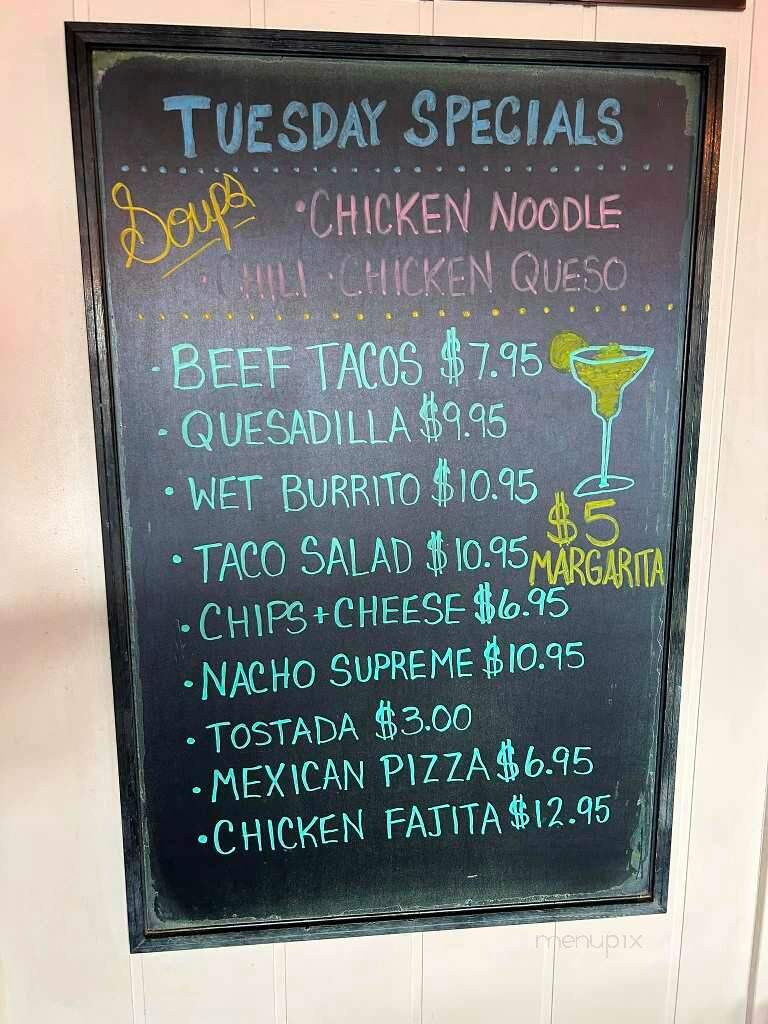 TUESDAY SPECIALS
Soups
• CHICKEN NOODLE
• CHILI • CHICKEN QUESO
- BEEF TACOS $7.95
- QUESADILLA $9.95
• WET BURRITO $10.95
• TACO SALAD $10.95
$5
MARGARITA
• CHIPS + CHEESE $6.95
• NACHO SUPREME $10.95
• TOSTADA $3.00
• MEXICAN PIZZA $6.95
• CHICKEN FAJITA $12.95
menupix